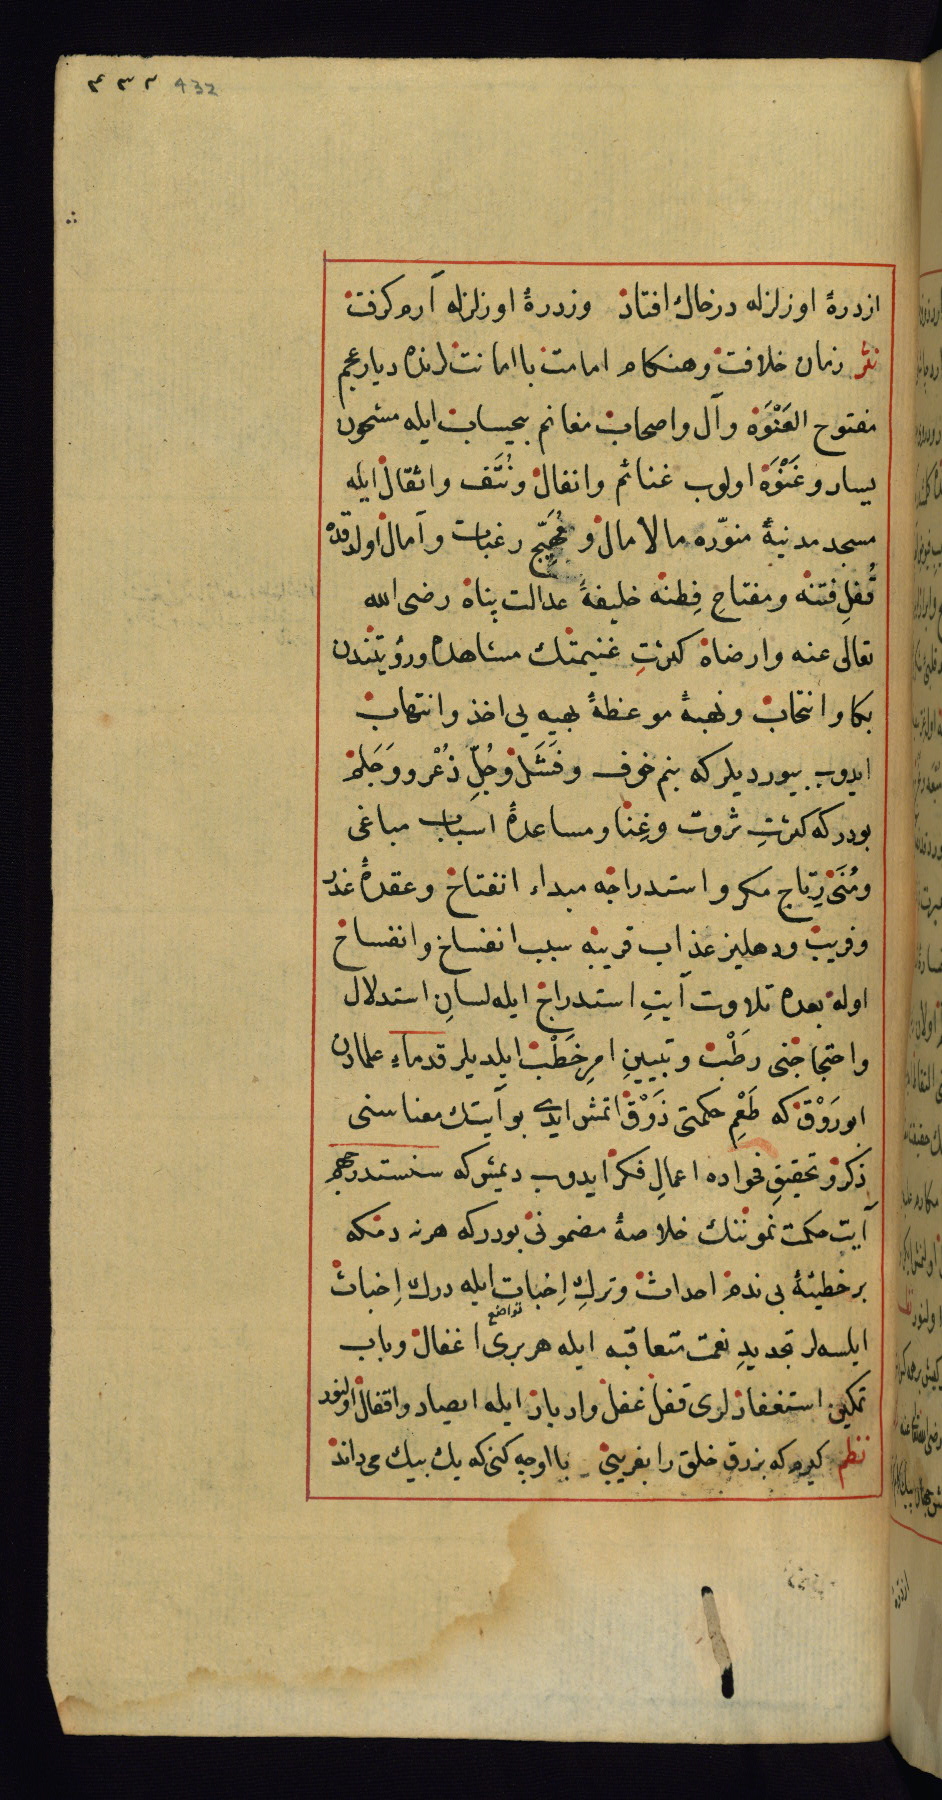 ٤٣٢ 432
از درهٔ او زلزله در خاك افتاد وز درهٔ او زلزله آرم كرفت
نثر زمان خلافت وهنكام امامت با امانتلرنده ديار عجم
مفتوح العَنْوَة وآل واصحاب مغانم بيحساب ايله مشحون
يسار وغَنْوَة اولوب غنائم وانفال ونُتَف واثقال ايله
مسجد مدينهٔ منوّره مالامال و مُهَيِّج رغبات وآمال اولدقده
قُفلِ فتنه ومفتاحِ فِطنه خليفهٔ عدالت پناه رضى الله
تعالى عنه وارضاه كثرتِ غنيمتك مشاهده ورؤيتندن
بكا وانتحاب ونهبهٔ موعظهٔ بهيه يى اخذ وانتهاب
ايدوب بيورديلر كه بنم خوف وفَشَل وجُلِّ ذُعْر ووَجَلم
بودر كه كثرتِ ثروت وغِنا ومساعدهٔ اسباب مباغى
ومُنَى رِتاج مكر واستدراجه مبداء انفتاح وعقدهٔ غدر
وفريب ودهليز عذاب قريبه سبب انفساخ وانفساح
اوله بعده تلاوت آيتِ استدراج ايله لسانِ استدلال
واحتجاجنى رطْب وتبيينِ امرِ خَطْب ايلديلر قدماء علمادن
ابو رَوْق كه طَعْمِ حكمتى ذَوْق اتمش ايدى بو آيتك معناسنى
ذكر وتحقيقِ فحواده اعمالِ فكر ايدوب ديمش كه سنستدرجهم
آيت حكمت نموننك خلاصهٔ مضمونى بودر كه هر نه دمكه
بر خطيئهٔ بى ندم احداث وتركِ اِخبات ايله درك اِخباث
تواضع
ايلسه لر تجديدِ نعمت متعاقبه ايله هر برى اغفال وباب
تمكين استغفارلرى قفل غفل وادبار ايله ايصاد واقفال اولنور
نظم كيرم كه بزرق خلق را بفريبى با او چه كنى كه يك بيك مى داند